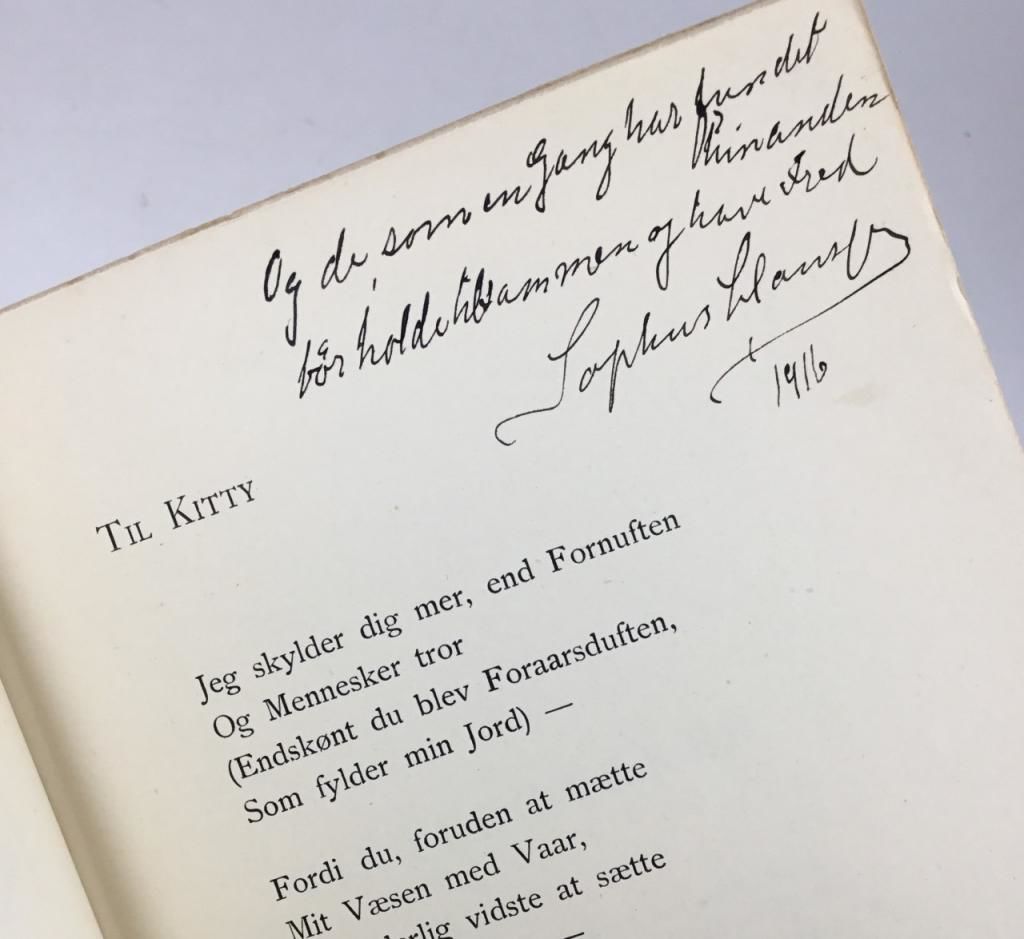 Og de, som en Gang har fundet
hinanden
bør holde til sammen og have Fred
Sophus Claussen
1916
TIL KITTY
Jeg skylder dig mer, end Fornuften
Og Mennesker tror
(Endskønt du blev Foraarsduften,
Som fylder min Jord) —
Fordi du, foruden at mætte
Mit Væsen med Vaar,
vidste at sætte
—